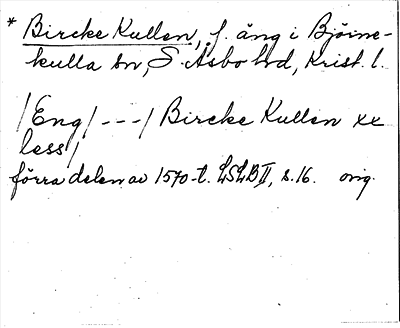 * Bircke Kullen, f. äng i Björne-
kulla sn, S. Åsbo hd, Krist. l.
/Eng/---/ Bircke Kullen xx
less/
förra delen av 1570-t. LSLB II, s. 16. orig.